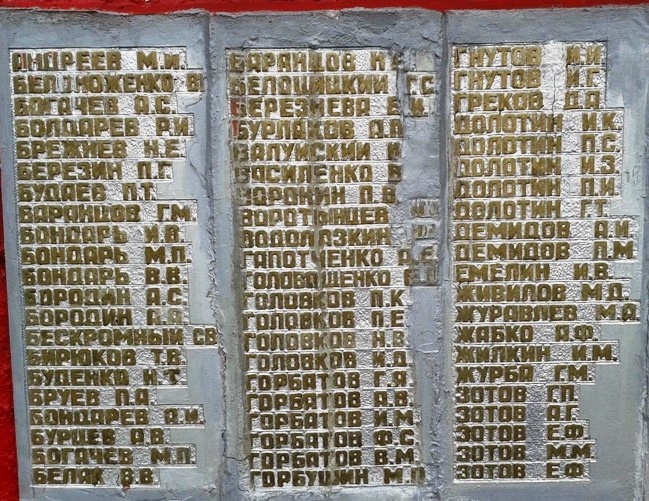 АНДРЕЕВ М.И.
БЕЛЛЮЖЕНКО В.
БОГАЧЕВ А.С.
БОЛДАРЕВ Р.И.
БРЕЖНЕВ Н.Е.
БЕРЕЗИН П.Г.
БУДАЕВ П.Т.
ВАРАНЦОВ Г.М.
БОНДАРЬ И.В.
БОНДАРЬ М.П.
БОНДАРЬ В.В.
БОРОДИН А.С.
БОРОДИН
БЕСКРОМНЫЙ С.В.
БИРЮКОВ Т.В.
БУДЕНКО Н.Т.
БРУЕВ П.А.
БОНДАРЕВ А.И.
БУРЦЕВ А.В.
БОГАЧЕВ М.П.
БЕЛАК В.В.
БАРАНЦОВ
БЕЛОШИЦКИЙ Г.С.
БЕРЕЗНЕВА
БУРЛАКОВ
ВАЛУЙСКИЙ
ВАСИЛЕНКО
ВОРОНИН П.В.
ВОРОТЫНЦЕВ
ВОДОЛАЗКИН
ГАПОТЧЕНКО А.Е.
ГОЛОВАЩЕНКО
ГОЛОВКОВ П.К.
ГОЛОВКОВ П.Е.
ГОЛОВКОВ Н.В.
ГОЛОВКОВ И.Д.
ГОРБАТОВ Г.Я.
ГОРБАТОВ А.В.
ГОРБАТОВ И.М.
ГОРБАТОВ Ф.С.
ГОРБАТОВ В.М.
ГОРБУШИН М.П.
ГНУТОВ И.И.
ГНУТОВ И.Г.
ГРЕКОВ Д.А.
ДОЛОТИН И.К.
ДОЛОТИН П.С.
ДОЛОТИН И.З.
ДОЛОТИН П.И.
ДОЛОТИН Г.Т.
ДЕМИДОВ А.И.
ДЕМИДОВ П.М.
ЕМЕЛИН И.В.
ЖИВИЛОВ М.Д.
ЖУРАВЛЕВ М.А.
ЖАБКО А.Ф.
ЖИЛКИН И.М.
ЖУРБА Г.М.
ЗОТОВ Г.П.
ЗОТОВ А.Г.
ЗОТОВ Е.Ф.
ЗОТОВ М.М.
ЗОТОВ Е.Ф.